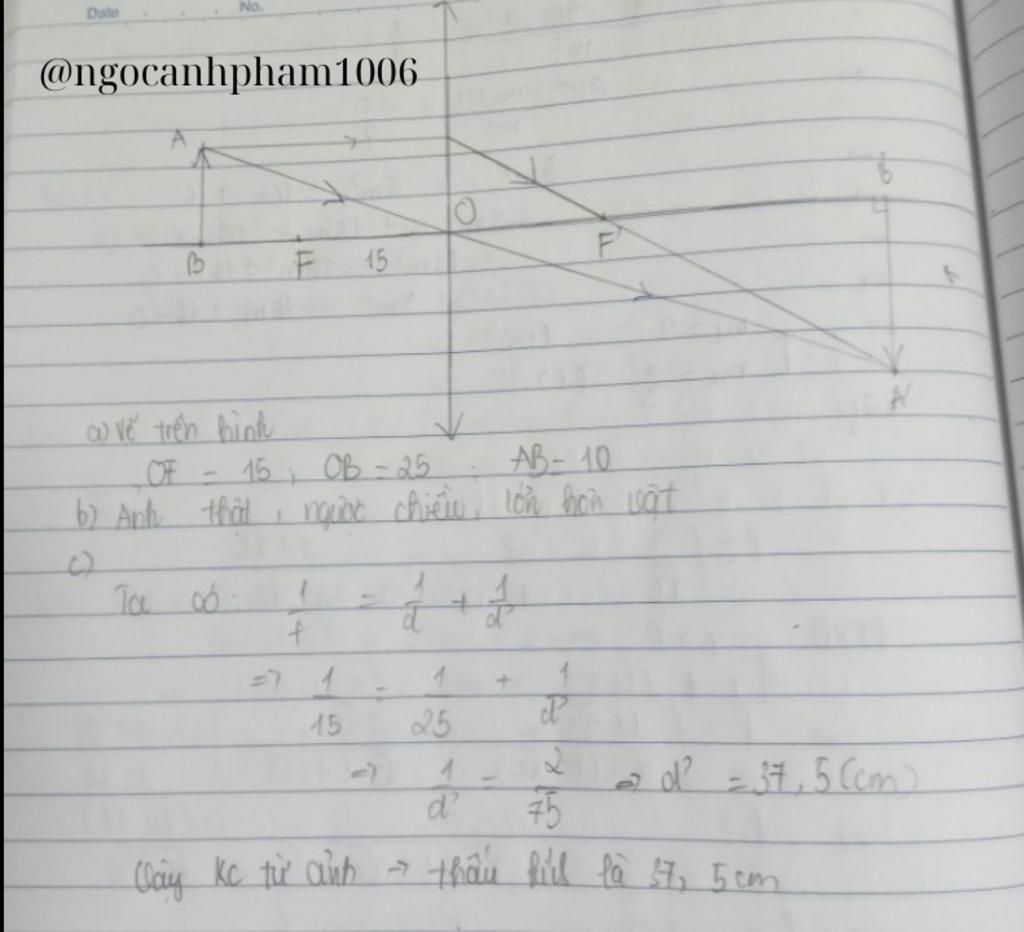 Date No.
@ngocanhpham1006
A
O
B F 15 F'
B'
A'
a) vẽ trên hình
OF = 15, OB = 25 . AB = 10
b) Ảnh thật, ngược chiều, lớn hơn vật
c)
Ta có: 1/f = 1/d + 1/d'
=> 1/15 = 1/25 + 1/d'
=> 1/d' = 2/75 => d' = 37,5 (cm)
Vậy KC từ ảnh → thấu kính là 37,5 cm